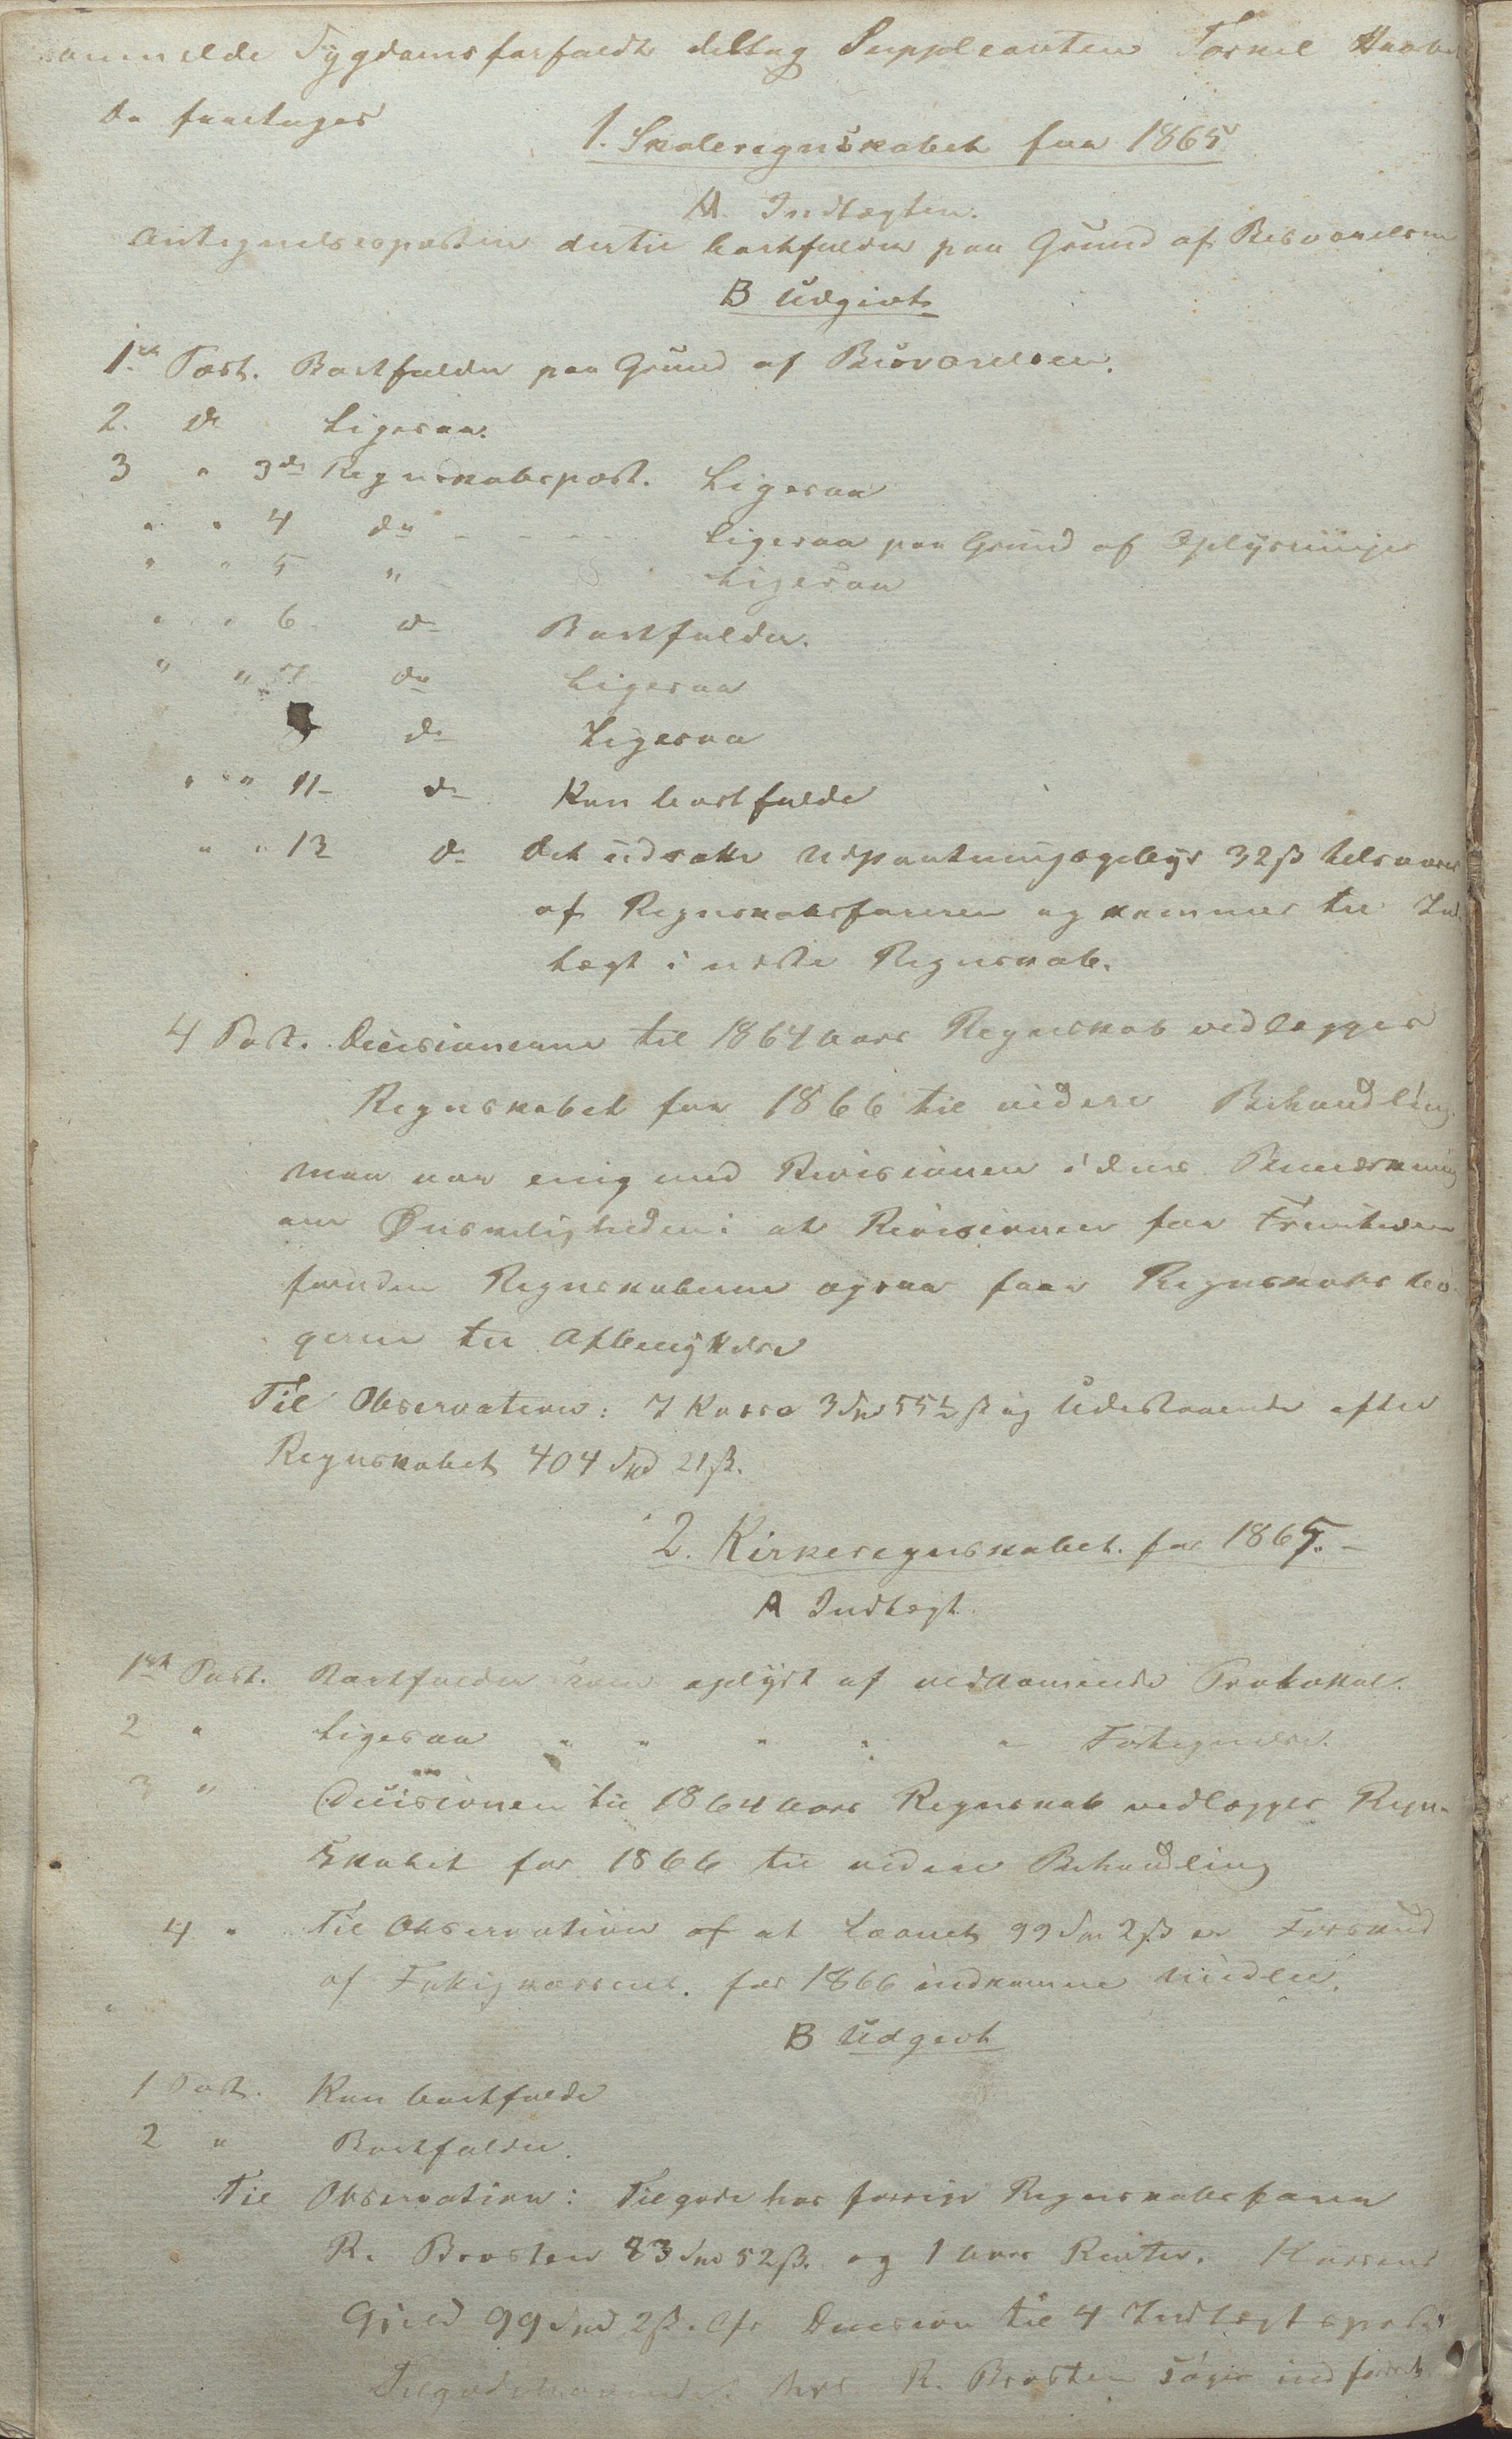 anmeldt Sygdomsforfald deltog Suppleanten Torkel
Da foretoges
1. Skoleregnskabet for 1865
A. Indtægten.
Antegnelsesposten dertil bortfalder paa Grund af Besvarelsen
B Udgivt
1ste Post. Bortfalder paa Grund af Besvarelsen.
2. do Ligesaa.
3 " 3die Regnskabspost. Ligesaa
" " 4 do - - - - Ligesaa paa Grund af Oplysninger
" " 5 " Ligesaa
" " 6 do Bortfalder.
" " 7 do Ligesaa
9 do Ligesaa
" " " 11 do Kan bortfalde
" " 12 do Det udsatte Udpantningsgebyr 32 ß tilsvares
af Regnskabsføreren og kommer til Ind-
tægt i næste Regnskab.
4 Post. Decisionerne til 1864 Aars Regnskab vedlegges
Regnskabet for 1866 til videre Behandling.
Man var enig med Revisionen i dens Bemærkning
om Ønskeligheden i at Revisionen for Fremtiden
foruden Regnskaberne ogsaa faar Regnskabsbø-
gerne til Afbenyttelse
Til Observation: I Kassa 3 Spd 55½ ß og Udestaaende efter
Regnskabet 404 Spd 21 ß.
2. Kirkeregnskabet for 1865. -
A Indtægt
1ste Post. Bortfalder som oplyst af vedkommende Protokol.
2 " Ligesaa " " " " " Fortegnelse.
3 " Decisionen til 1864 Aars Regnskab vedlægges Regn-
skabet for 1866 til videre Behandling
4 " Til Observation af at Laanet 99 Spd 2 ß er Forskud
af Fattigkassens for 1866 indkomne Midler.
B Udgivt
1 Post. Kan bortfalde
2 " Bortfalder.
Til Observation: Tilgode hos forrige Regnskabsfører
R. Brosten 83 Spd 52 ß. og 1 Aars Renter. Kassens
Gjeld 99 Spd 2 ß. Cfr Decision til 4 Indtægtspost
Tilgodehavendet hos R. Brosten søges indfordret